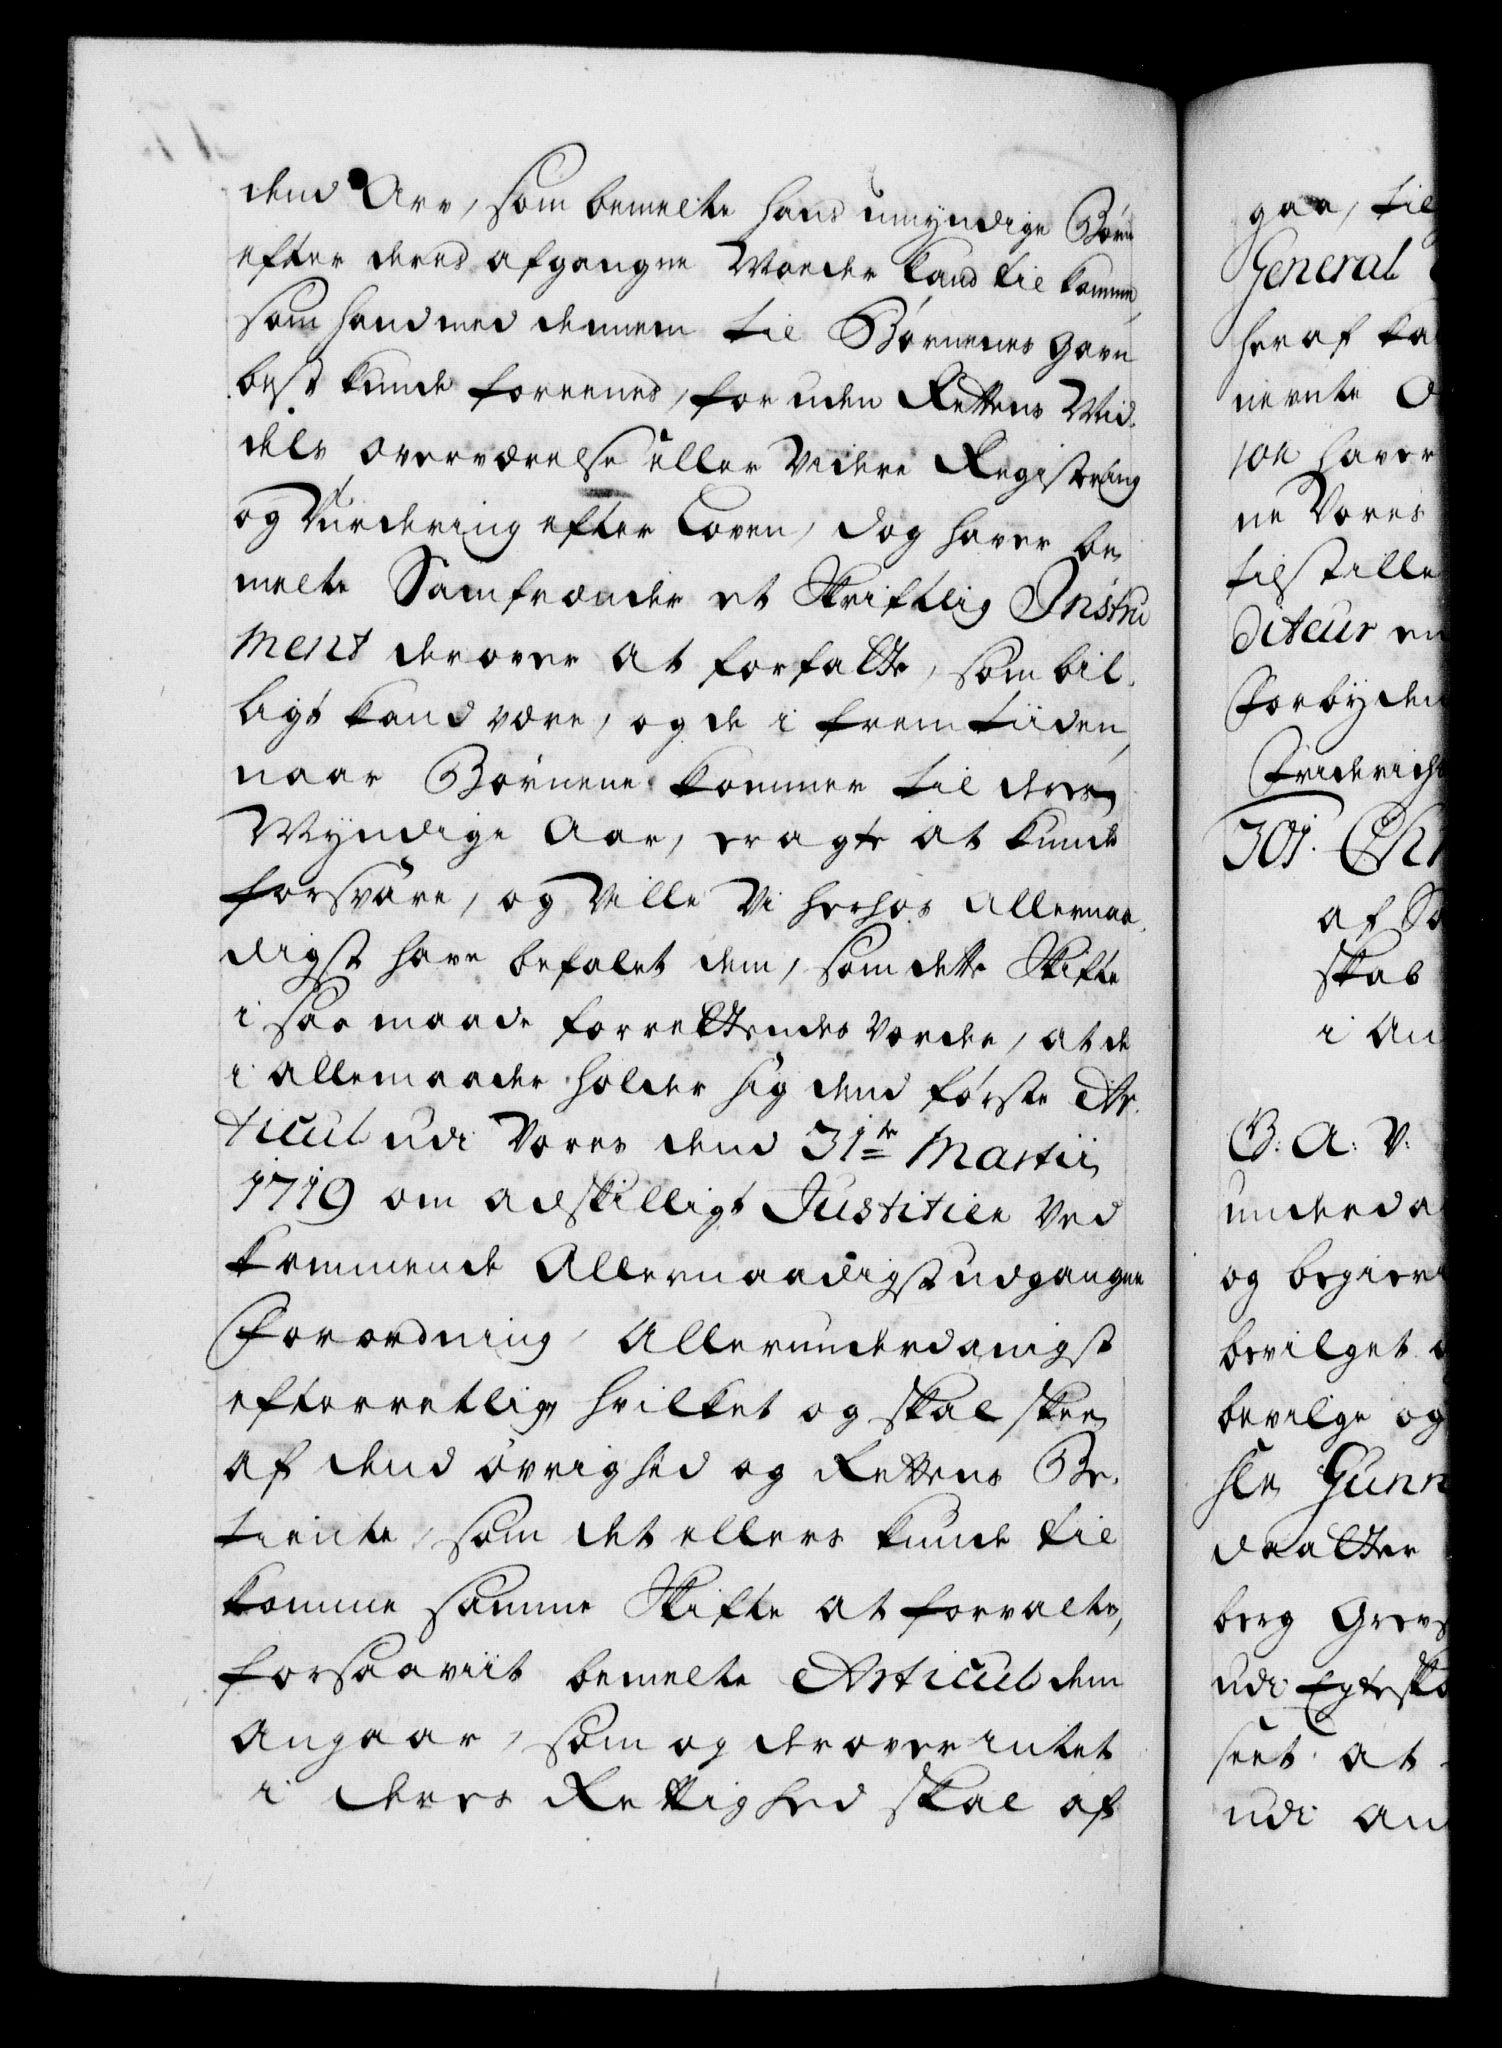 dend Arv, som bemelte hans umyndige Børn
efter deres afgangne Moeder kand til komme,
som hand med dennem til Børnenes gavn
best kunde foreenes, foruden Rettens Mid-
dels overværelse eller Videre Registering
og Vurdering efter Loven, dog haver be
melte Samfrænder et Skriftlig Instru
ment derover at forfatte, som bil-
ligt kand være, og de i fremtiiden,
naar Børnene kommer til deres
Myndige Aar, eragte at kunde
forsvare, og Ville Vi herhos allernaa-
digst have befalet dem, som dette Skifte
i saa maade forrettendes vorder, at de
i allemaader holder sig dend første Ar-
ticul udi Vores dend 31te Martii
1719 om adskilligt Justitien Ved
kommende Allernaadigst udgangne
Forordning Allerunderdanigst
efterretlig, hvilket og skal skee
af dend øvrighed og Rettens Be-
tiente, som det ellers kunde til
komme samme Skifte at forvalte,
forsaaviit bemelte Articul dem
angaar, som og derover intet
i deres Rettighed skal af
gaa, til
General
her af ka
nevnte O
son haver
ne Vores
tilstille
diteur en
Forbyden
Friderichs
301. Chr
af So
skab
i An
G: A: V:
underda
og begier
bevilget o
bevilge og
sle Gunn
daatter
berg Grevs
udi Egtesk
seet at
udi An